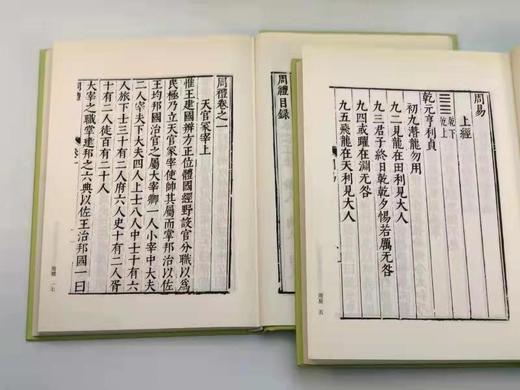 周易
上經
乾下
乾上
乾元亨利貞
初九潛龍勿用
九二見龍在田利見大人
九三君子終日乾乾夕惕若厲无咎
九四或躍在淵无咎
九五飛龍在天利見大人
周易 五
周禮目錄
周禮卷之一
天官冢宰上
惟王建國辨方正位體國經野設官分職以為
民極乃立天官冢宰使帥其屬而掌邦治以佐
王均邦國治官之屬大宰卿一人小宰中大夫
二人宰夫下大夫四人上士八人中士十有六
人旅下士三十有二人府六人史十有二人胥
十有二人徒百有二十人
大宰之職掌建邦之六典以佐王治邦國一曰
周禮 一七